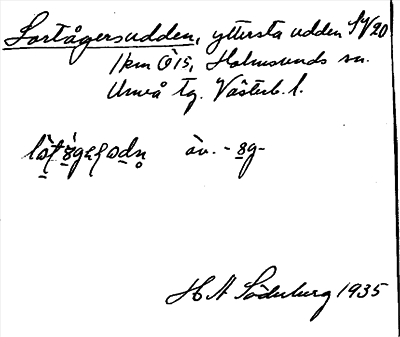 Lortågersudden, yttersta udden SV20
1km Ö15, Holmsunds sn.
Umeå tg. Västerb. l.
äv. -
H A Söderberg 1935